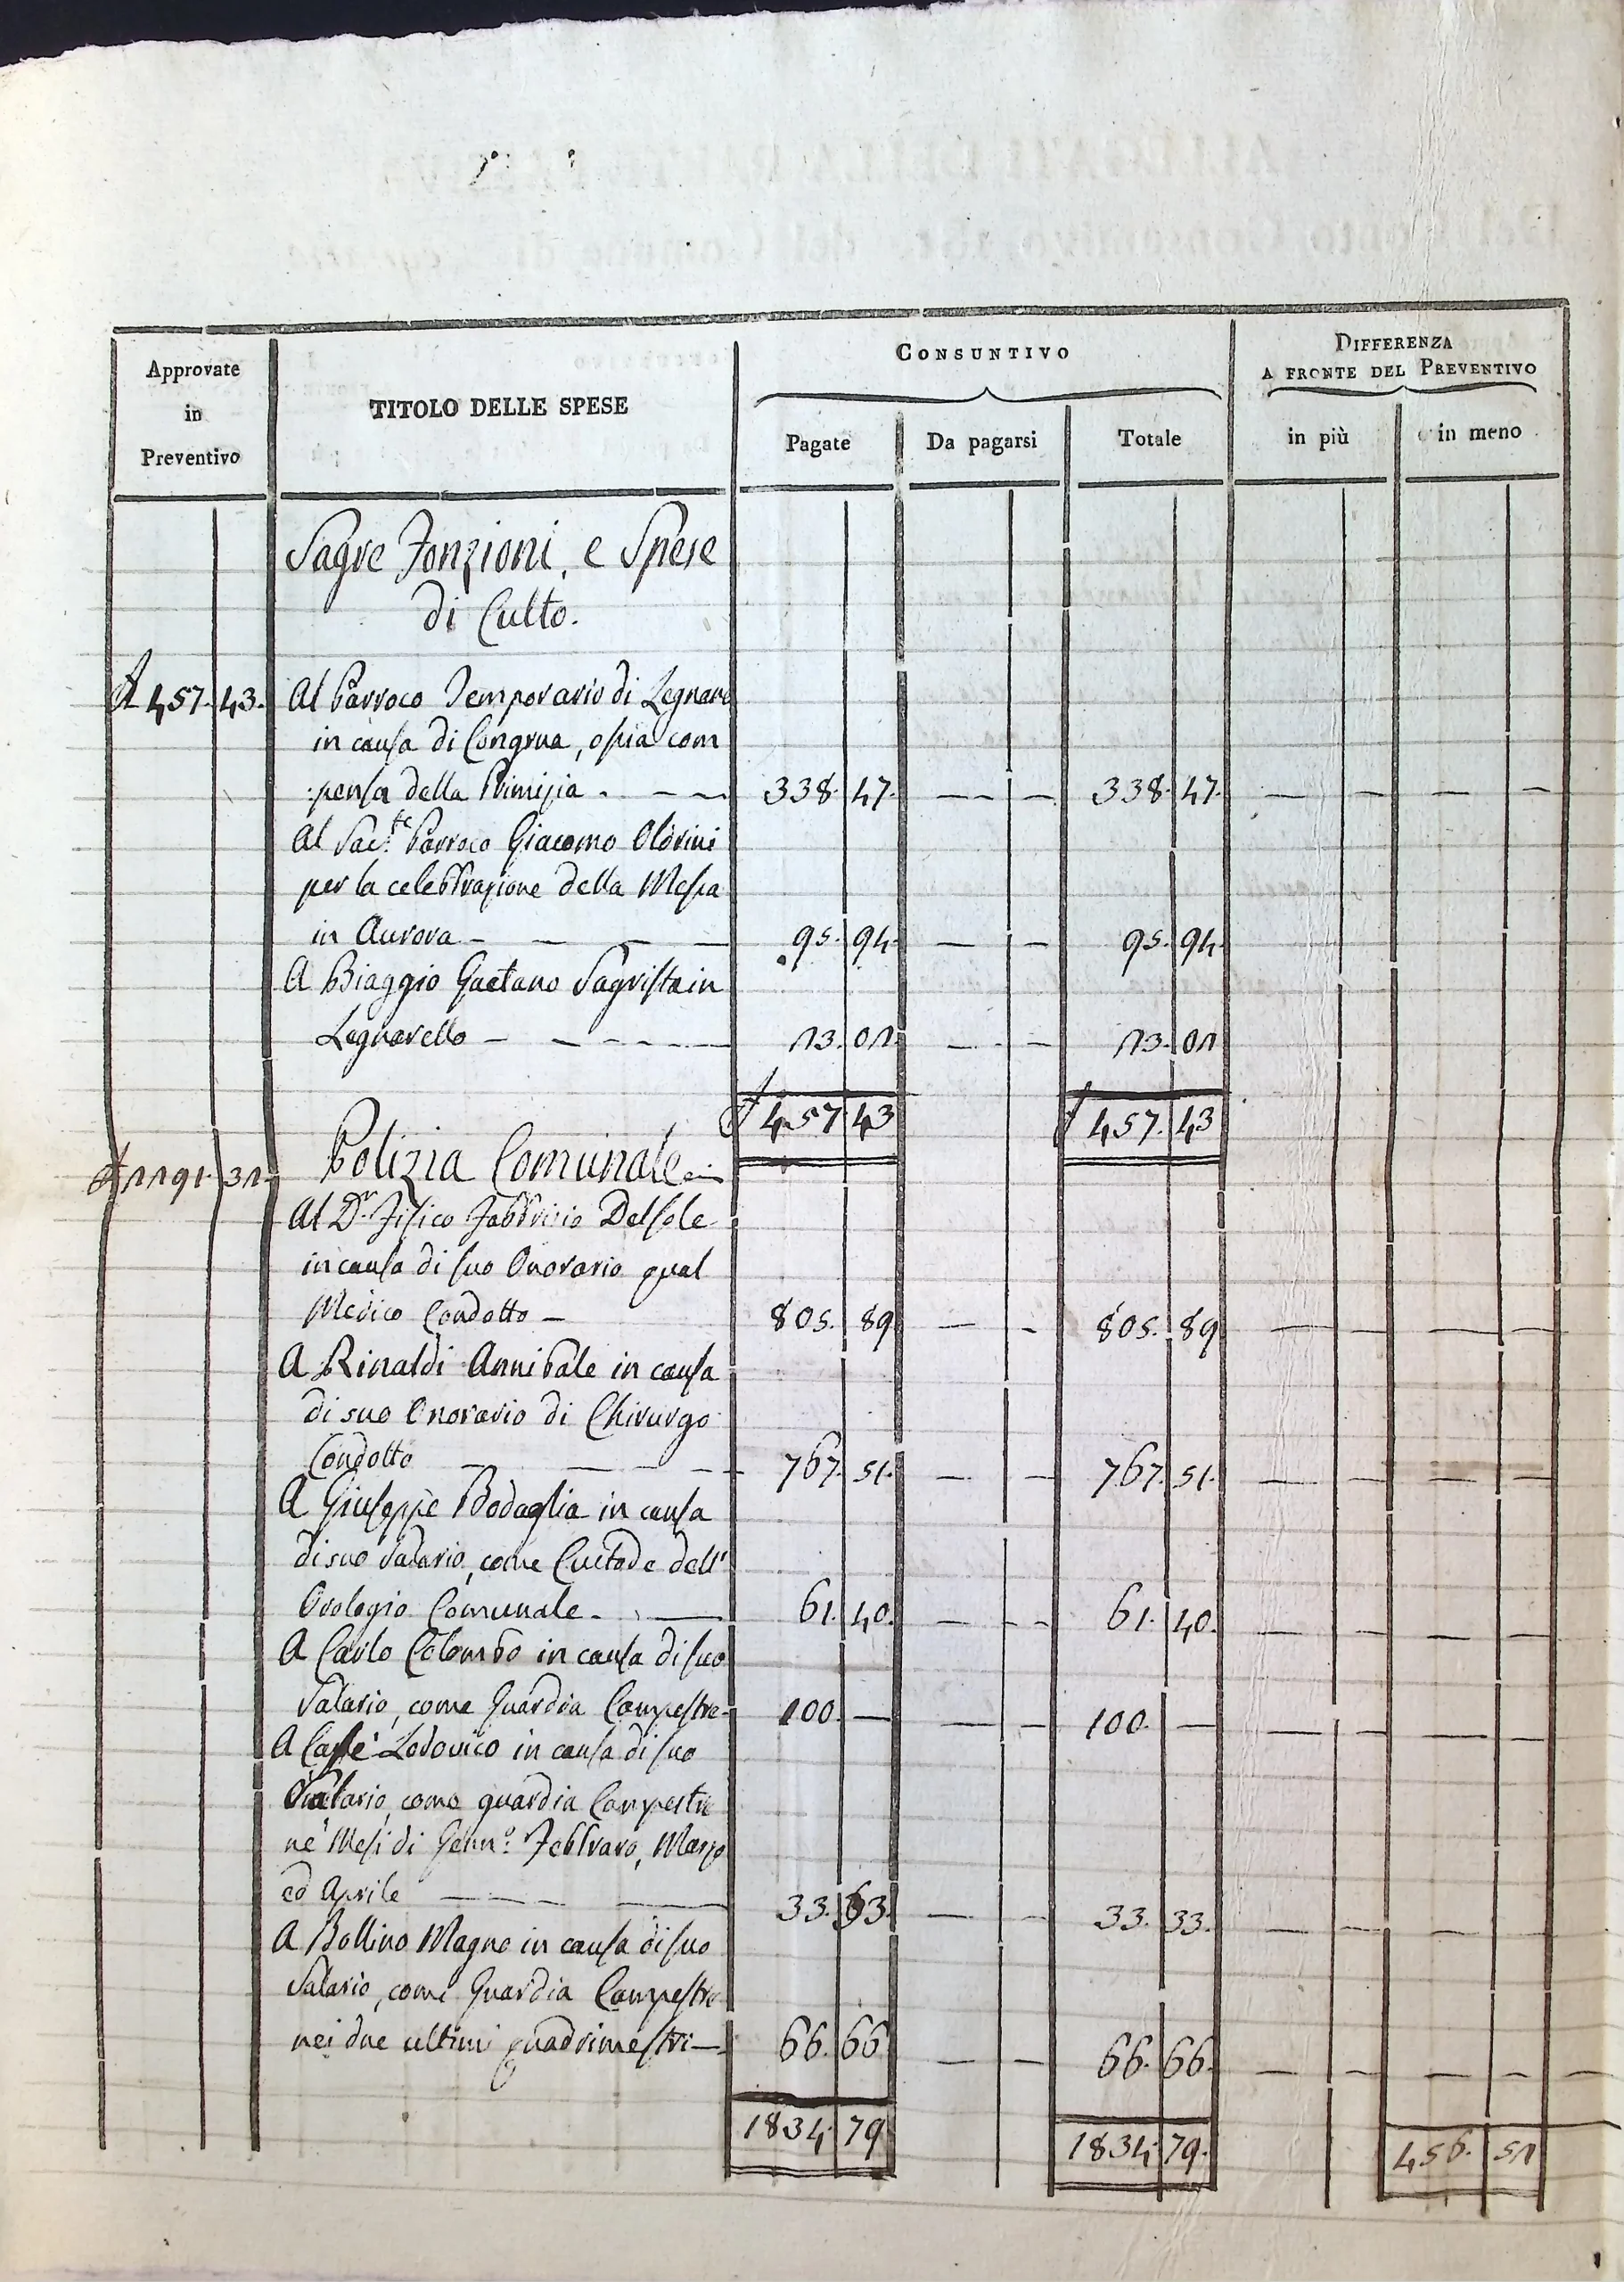 Approvate
in
Preventivo
TITOLO DELLE SPESE
CONSUNTIVO
Pagate
Da pagarsi
Totale
DIFFERENZA
A FRONTE DEL PREVENTIVO
in più
in meno
Sagre Fonzioni, e Spese
di Culto.
457. 43. Al Parroco Temporario di Legnano
in causa di Congrua, ossia com
:pensa della Primizia . - - - 338. 47. — - — 338. 47. — - — -
Al Sac.te Parroco Giacomo Oldrini
per la celebbrazione della Messa
in Aurora - — - — 95. 94. — - 95. 94.
A Biaggio Gaetano Sagrista in
Legnarello — - - - - 13. 01. — - - 13. 01
457. 43 457. 43
1191. 31. Polizia Comunale
Al Dr. Fisico Fabbrizio Delsole
in causa di suo Onorario qual
Medico Condotto — 805. 89 — - 805. 89 — — — —
A Rinaldi Annibale in causa
di suo Onorario di Chirurgo
Condotto — — - - 767. 51. — - 767. 51. — — — —
A Giuseppe Bodaglia in causa
di suo Salario, come Custode dell'
Orologio Comunale. - — 61. 40. — - - 61. 40. — — — —
A Carlo Colombo in causa di suo
Salario, come Guardia Campestre- 100. — — - 100. — — — — —
A Lodovico in causa di suo
Salario, come guardia Campestre
ne' Mesi di Genn.o Febbraro, Marzo
ed Aprile — - - — 33. 33. — - 33. 33. — —
A Bollino Magno in causa di suo
Salario, come Guardia Campestre
nei due ultimi quadrimestri — 66. 66 — - 66. 66. — - — - —
1834. 79 1834. 79. 456. 51